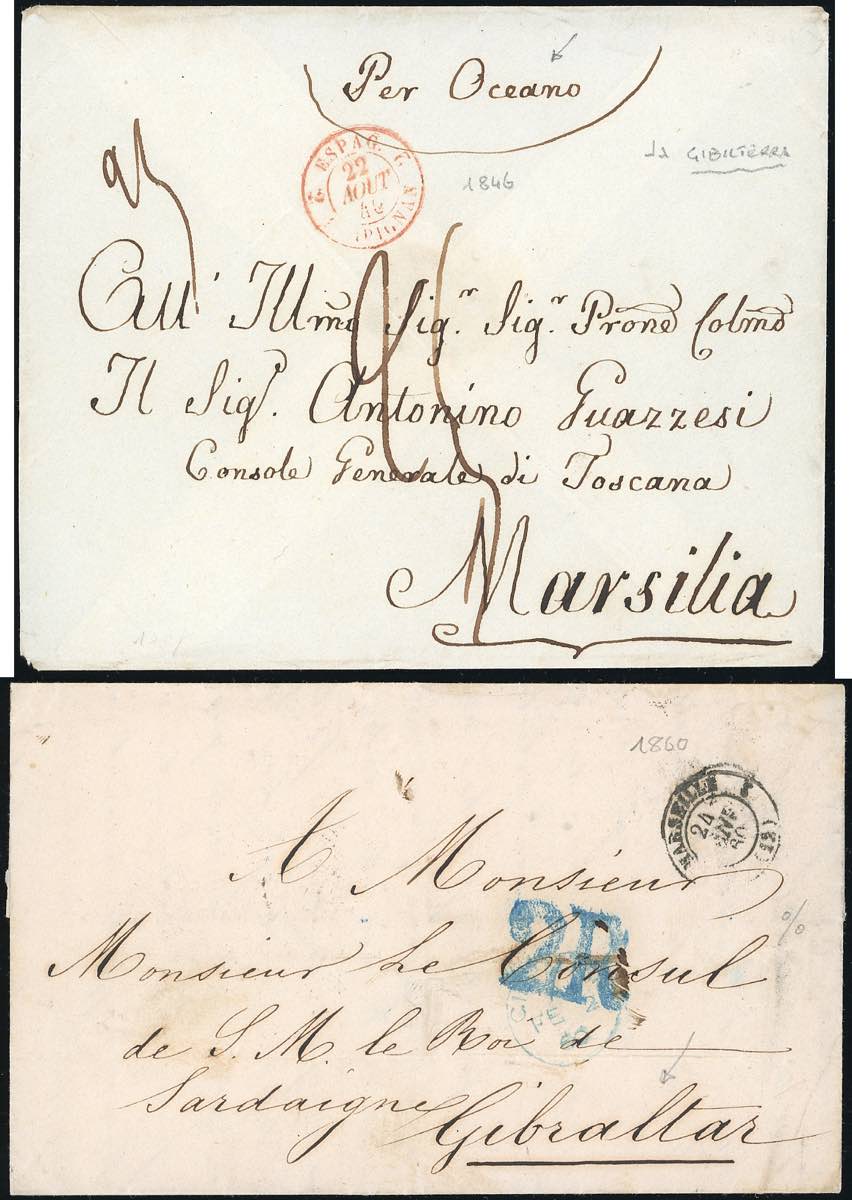 Per Oceano
da GIBILTERRA
ESPAG. 2
22
AOUT
46
1846
All' Illmo Sigr. Sigr. Prone Colmo
Il Sigr. Antonino Guazzesi
Console Generale di Toscana
Marsilia
1860
MARSEILLE
24
(12)
A Monsieur
%
2R
Monsieur Le Consul
de S. M. le Roi de
Sardaigne
Gibraltar